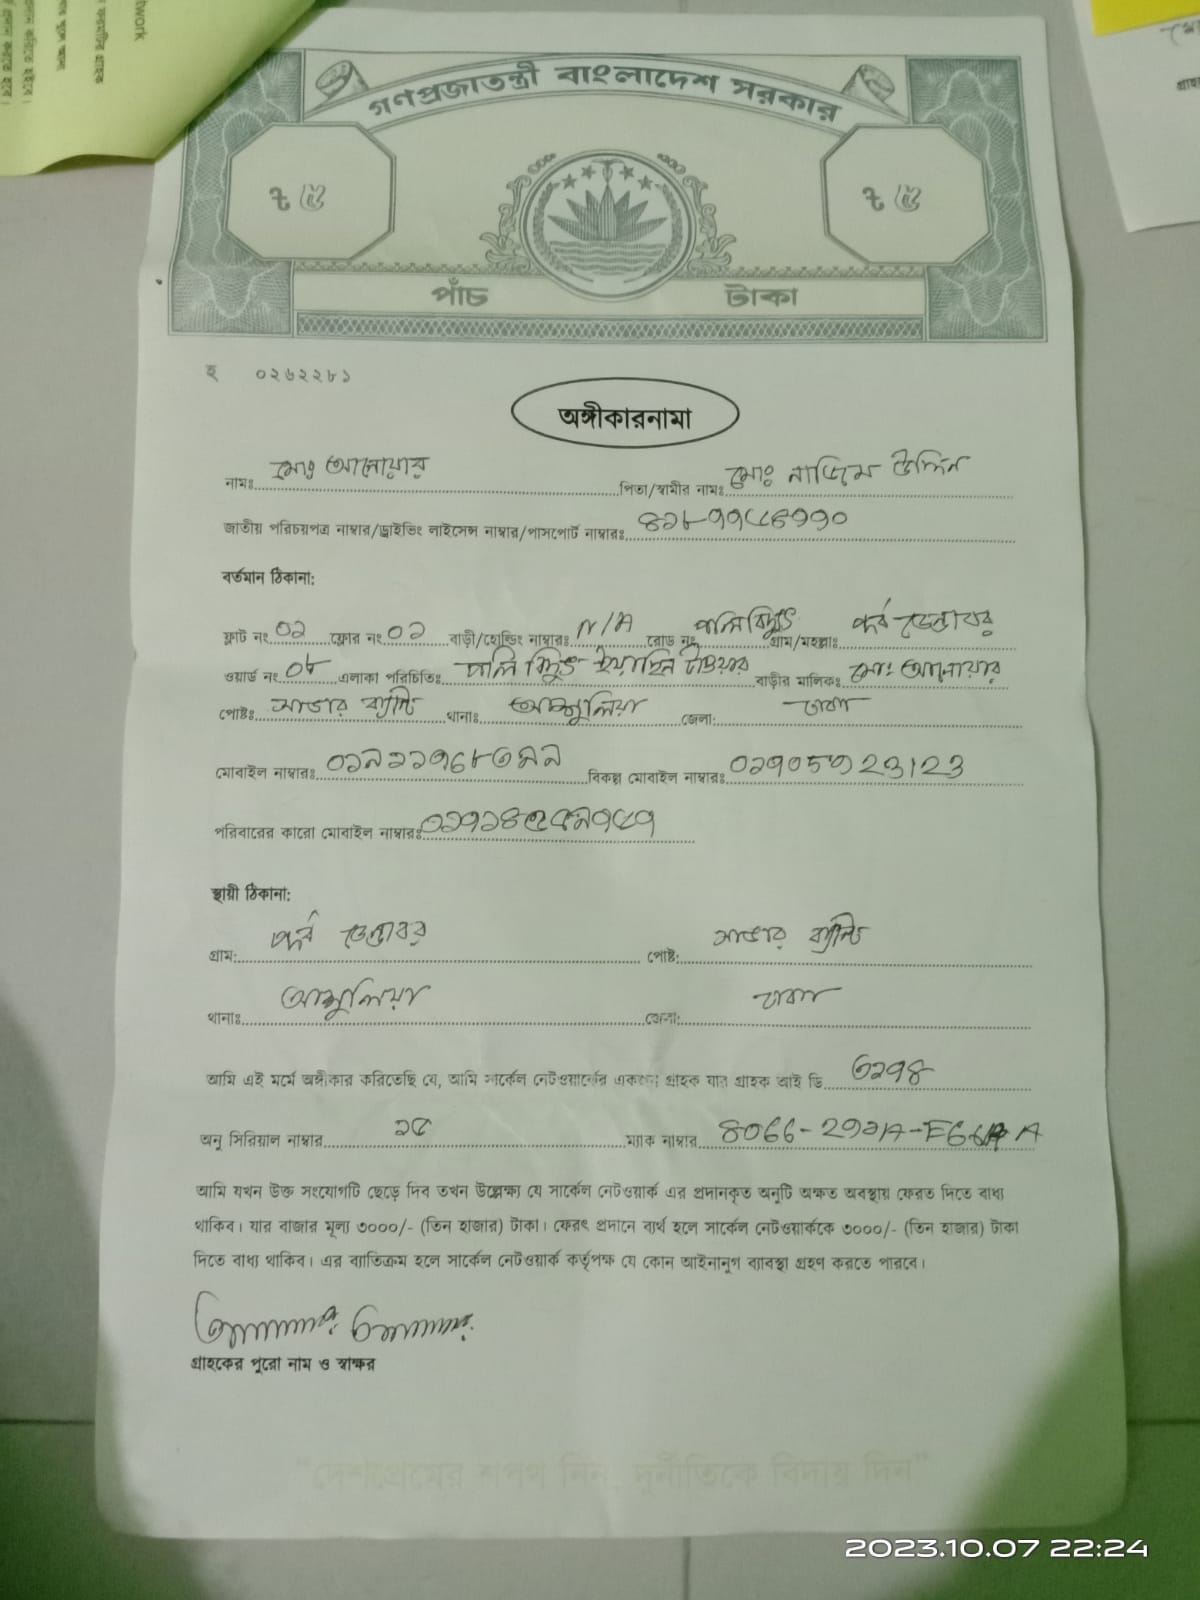 গণপ্রজাতন্ত্রী বাংলাদেশ সরকার
৳ ৫ ৳ ৫
পাঁচ টাকা
হ ০২৬২২৮১
অঙ্গীকারনামা
নামঃ মোঃ আনোয়ার পিতা/স্বামীর নামঃ মোঃ নাজিম উদ্দিন
জাতীয় পরিচয়পত্র নাম্বার/ড্রাইভিং লাইসেন্স নাম্বার/পাসপোর্ট নাম্বারঃ
বর্তমান ঠিকানা:
ফ্লাট নং ০১ ফ্লোর নং ০১ বাড়ী/হোল্ডিং নাম্বারঃ N/A রোড নং পল্লি বিদ্যুৎ গ্রাম/মহল্লাঃ পূর্ব ডেন্ডাবর
ওয়ার্ড নং ০৮ এলাকা পরিচিতিঃ পল্লি বিদ্যুৎ ইয়াছিন টাওয়ার বাড়ীর মালিকঃ মোঃ আনোয়ার
পোষ্টঃ সাভার ক্যান্ট থানাঃ আশুলিয়া জেলা: ঢাকা
মোবাইল নাম্বারঃ বিকল্প মোবাইল নাম্বারঃ
পরিবারের কারো মোবাইল নাম্বারঃ
স্থায়ী ঠিকানা:
গ্রাম: পূর্ব ডেন্ডাবর পোষ্ট: সাভার ক্যান্ট
থানাঃ আশুলিয়া জেলা: ঢাকা
আমি এই মর্মে অঙ্গীকার করিতেছি যে, আমি সার্কেল নেটওয়ার্কের একজন গ্রাহক যার গ্রাহক আই ডি ৩১৭৪
অনু সিরিয়াল নাম্বার ১৫ ম্যাক নাম্বার
আমি যখন উক্ত সংযোগটি ছেড়ে দিব তখন উল্লেক্ষ্য যে সার্কেল নেটওয়ার্ক এর প্রদানকৃত অনুটি অক্ষত অবস্থায় ফেরত দিতে বাধ্য
থাকিব। যার বাজার মূল্য ৩০০০/- (তিন হাজার) টাকা। ফেরৎ প্রদানে ব্যর্থ হলে সার্কেল নেটওয়ার্ককে ৩০০০/- (তিন হাজার) টাকা
দিতে বাধ্য থাকিব। এর ব্যাতিক্রম হলে সার্কেল নেটওয়ার্ক কর্তৃপক্ষ যে কোন আইনানুগ ব্যাবস্থা গ্রহণ করতে পারবে।
গ্রাহকের পুরো নাম ও স্বাক্ষর
"দেশপ্রেমের শপথ নিন, দুর্নীতিকে বিদায় দিন"
2023.10.07 22:24